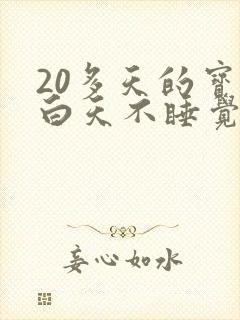 20多天的宝
白天不睡觉
妄心如水